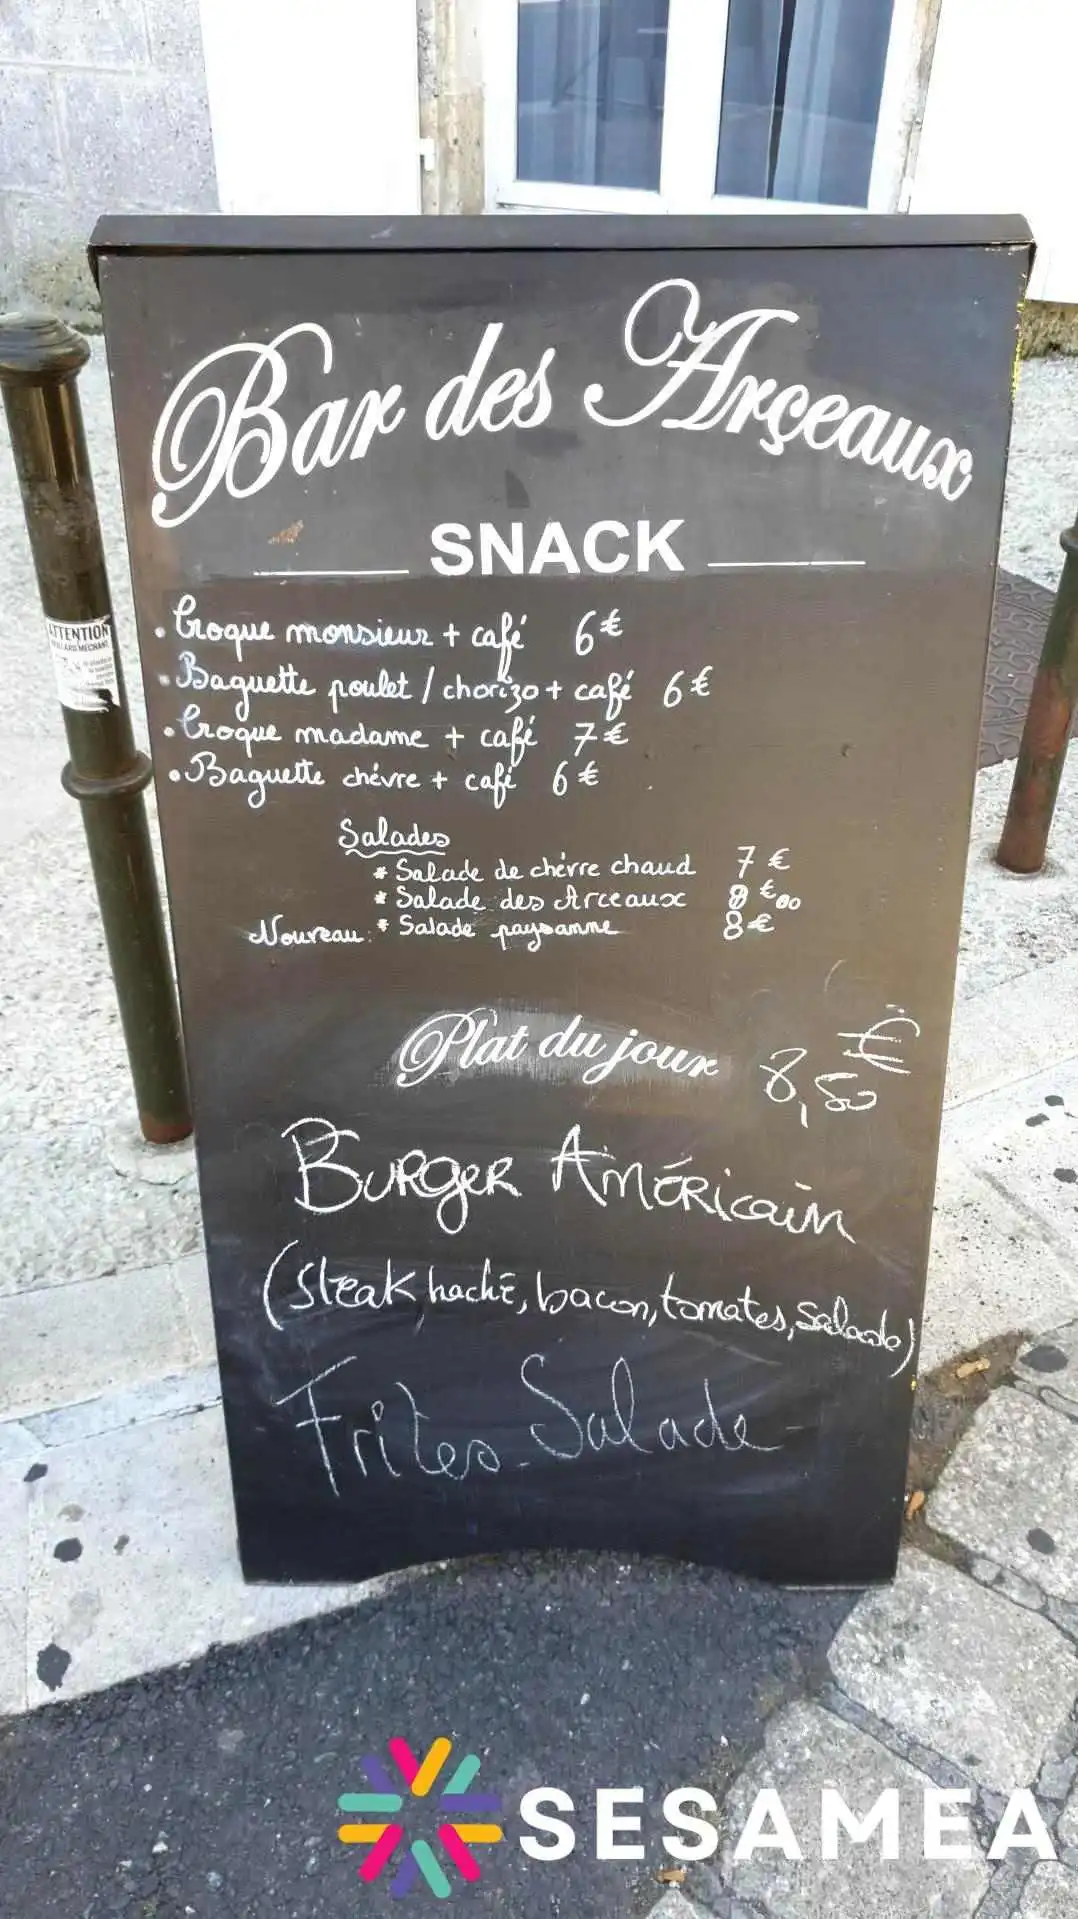 Bar des Arçeaux
SNACK
• Croque monsieur + café 6€
• Baguette poulet / chorizo + café 6€
• Croque madame + café 7€
• Baguette chévre + café 6€
Salades
* Salade de chévre chaud 7€
* Salade des Arceaux 8€00
Nouveau: * Salade paysanne 8€
Plat du jour 8,50€
Burger Américain
(steak haché, bacon, tomates, salade)
Frites - Salade
ATTENTION
SESAMEA